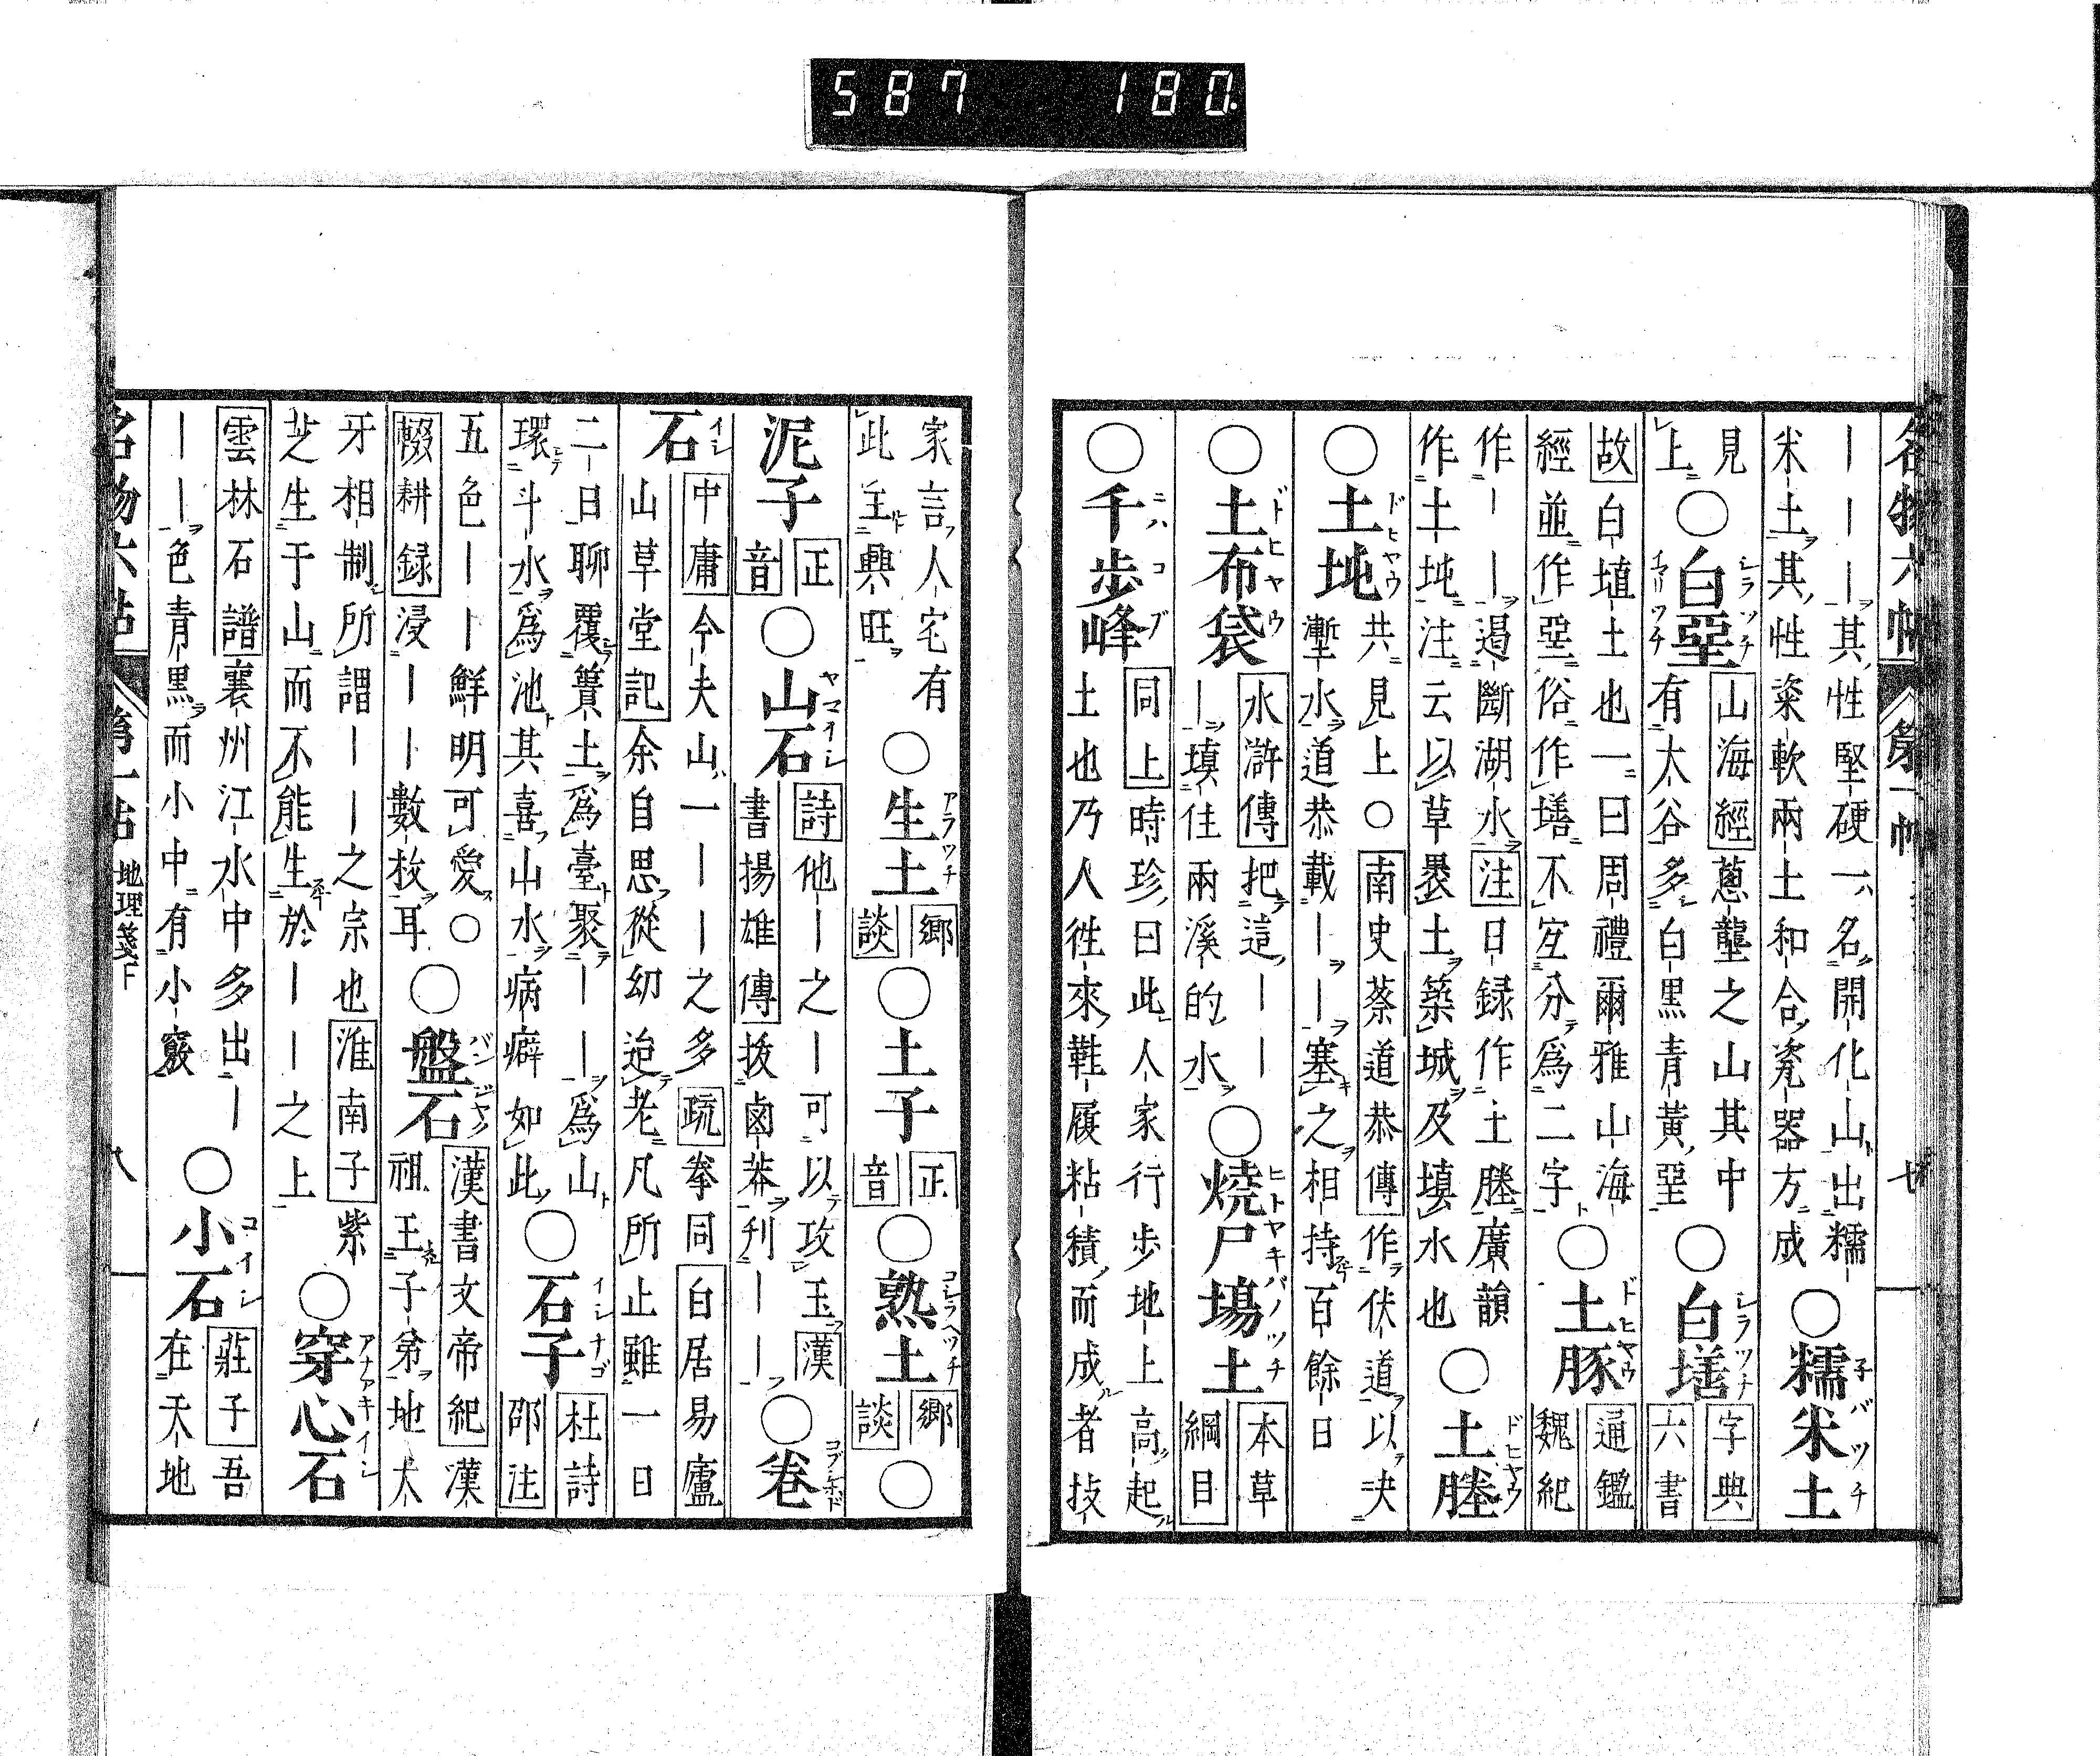 587 180.
名物六帖 第一帖 七
｜｜｜其性堅硬一名開化山出糯
米土其性粢軟兩土和合瓷器方成
○糯米土
見
上
○白堊
山海經
蔥聾之山其中
有大谷多白黑青黃堊
○白墡
字典
六書
故
白埴土也一曰周禮爾雅山海
經並作堊俗作墡不宜分爲二字
○土豚
通鑑
魏紀
作｜｜遏斷湖水
注
日録作土塍廣韻
作土坉注云以草裹土築城及填水也
○土塍
○土坉
共見上○
南史蔡道恭傳
作伏道以決
塹水道恭載｜｜塞之相持百餘日
○土布袋
水滸傳
把這｜｜
｜填住兩溪的水
○燒尸場土
本草
綱目
○千步峰
同上
時珍曰此人家行步地上高起
土也乃人徃來鞋履粘積而成者技
家言人宅有
此主興旺
○生土
鄉
談
○土子
正
音
○熟土
鄉
談
○
泥子
正
音
○山石
詩
他｜之｜可以攻玉
漢
書揚雄傳
拔鹵莽刋｜｜
○卷
石
中庸
今夫山一｜｜之多
疏
拳同
白居易廬
山草堂記
余自思從幼迨老凡所止雖一日
二日聊覆簣土爲臺聚｜｜爲山
環斗水爲池其喜山水病癖如此
○石子
杜詩
邵注
五色｜｜鮮明可愛○
輟耕録
浸｜｜數枚耳
○盤石
漢書文帝紀
漢
祖王子弟地犬
牙相制所謂｜｜之宗也
淮南子
紫
芝生于山而不能生於｜｜之上
○穿心石
雲林石譜
襄州江水中多出｜
｜｜色青黑而小中有小竅
○小石
莊子
吾
在天地
名物六帖 第一帖 地理箋下 八